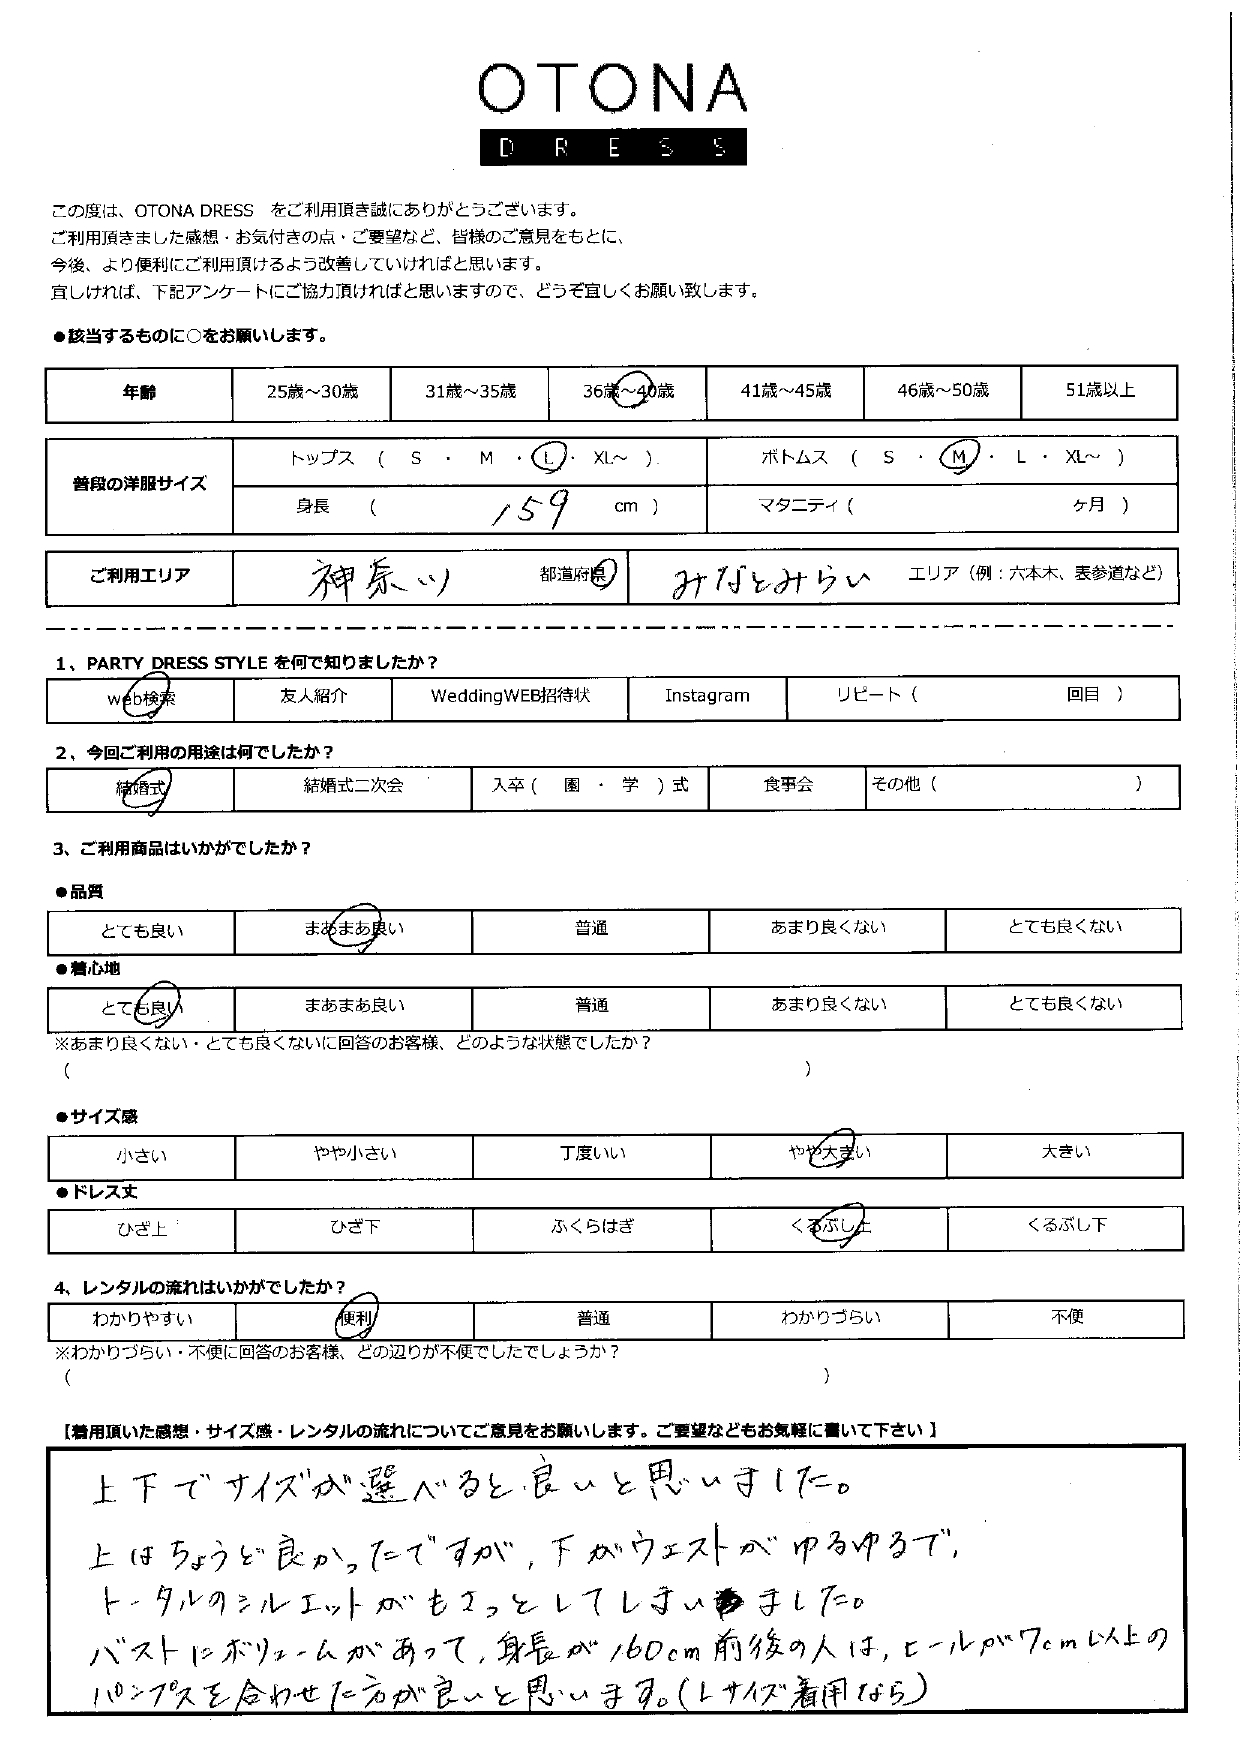 OTONA
DRESS
この度は、OTONA DRESS をご利用頂き誠にありがとうございます。
ご利用頂きました感想・お気付きの点・ご要望など、皆様のご意見をもとに、
今後、より便利にご利用頂けるよう改善していければと思います。
宜しければ、下記アンケートにご協力頂ければと思いますので、どうぞ宜しくお願い致します。
●該当するものに○をお願いします。
年齢 25歳～30歳 31歳～35歳 36歳～40歳 41歳～45歳 46歳～50歳 51歳以上
普段の洋服サイズ トップス ( S ・ M ・ L ・ XL～ ) ボトムス ( S ・ M ・ L ・ XL～ )
身長 ( 159 cm ) マタニティ ( ヶ月 )
ご利用エリア 神奈川 都道府県 みなとみらい エリア（例：六本木、表参道など）
1、PARTY DRESS STYLE を何で知りましたか？
web検索 友人紹介 WeddingWEB招待状 Instagram リピート ( 回目 )
2、今回ご利用の用途は何でしたか？
結婚式 結婚式二次会 入卒 ( 園 ・ 学 ) 式 食事会 その他 ( )
3、ご利用商品はいかがでしたか？
●品質
とても良い まあまあ良い 普通 あまり良くない とても良くない
●着心地
とても良い まあまあ良い 普通 あまり良くない とても良くない
※あまり良くない・とても良くないに回答のお客様、どのような状態でしたか？
( )
●サイズ感
小さい やや小さい 丁度いい やや大きい 大きい
●ドレス丈
ひざ上 ひざ下 ふくらはぎ くるぶし上 くるぶし下
4、レンタルの流れはいかがでしたか？
わかりやすい 便利 普通 わかりづらい 不便
※わかりづらい・不便に回答のお客様、どの辺りが不便でしたでしょうか？
( )
【着用頂いた感想・サイズ感・レンタルの流れについてご意見をお願いします。ご要望などもお気軽に書いて下さい 】
上下でサイズが選べると良いと思いました。
上はちょうど良かったですが、下がウェストがゆるゆるで、
トータルのシルエットがもさっとしてしまいました。
バストにボリュームがあって、身長が160cm前後の人は、ヒールが7cm以上の
パンプスを合わせた方が良いと思います。(Lサイズ着用なら)